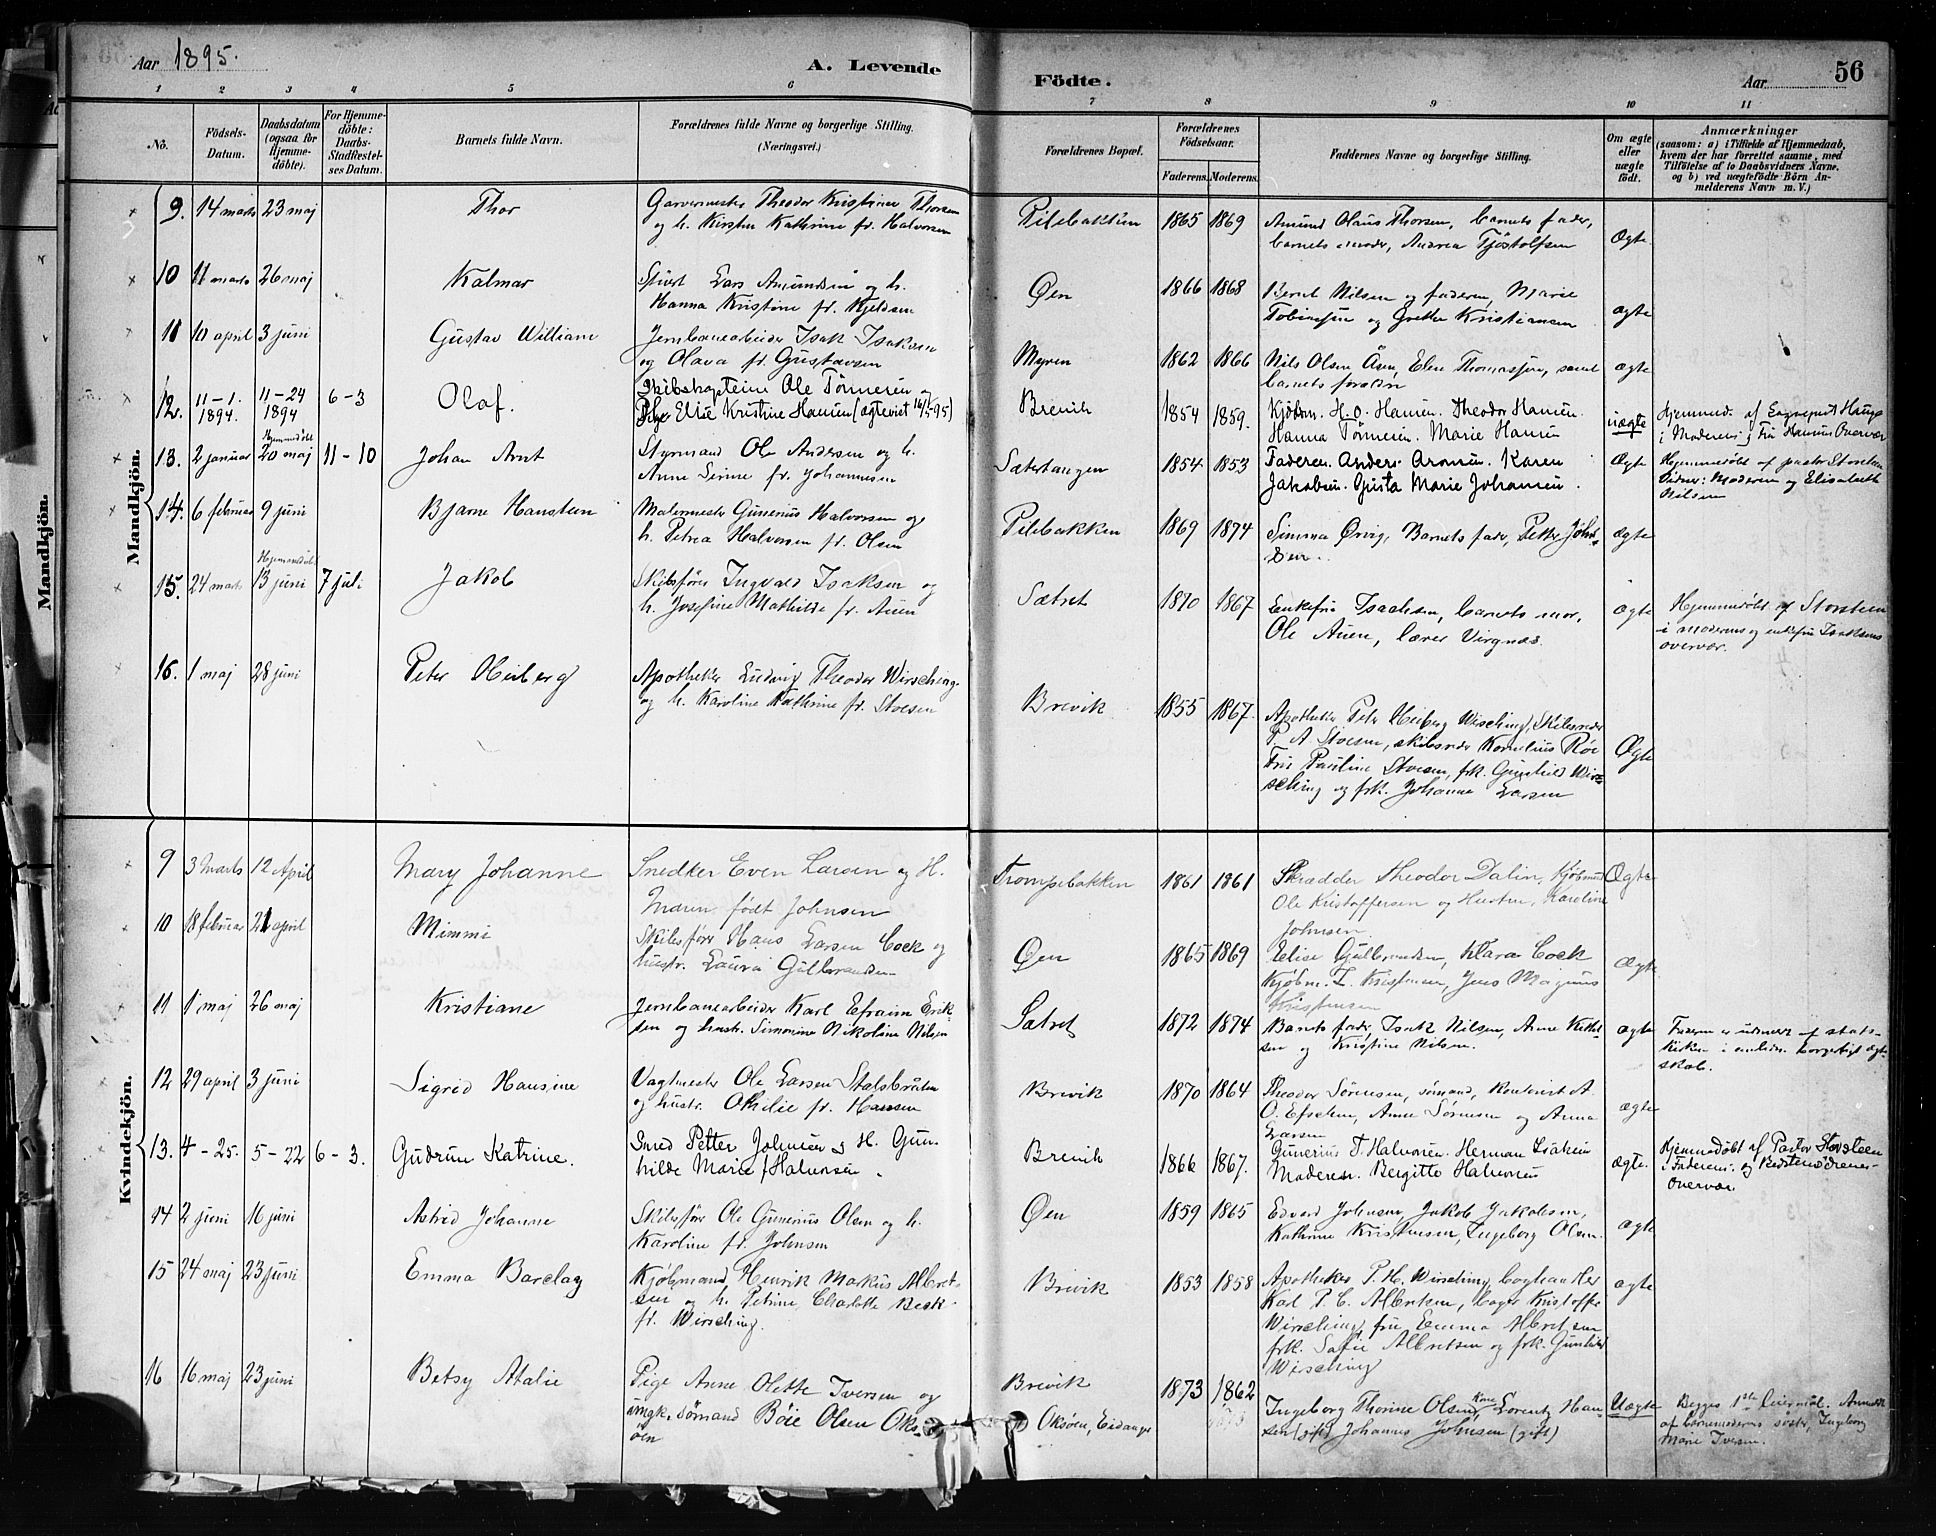 Aar 1895. A. Levende Födte. Aar 56
1 2 3 4 5 6 7 8 9 10 11
No. Födsels-Datum. Daabsdatum (ogsaa for Hjemmedöbte). For Hjemmedöbte: Daabs-Stadfestelses Datum. Barnets fulde Navn. Forældrenes fulde Navne og borgerlige Stilling. (Næringsvei.) Forældrenes Bopæl. Forældrenes Födselsaar. Faderens. Moderens. Faddernes Navne og borgerlige Stilling. Om ægte eller uægte födt. Anmærkninger (saasom: a) i Tilfælde af Hjemmedaab, hvem der har forrettet samme, med Tilföielse af to Daabsvidners Navne, og b) ved uægtefödte Börn Anmelderens Navn m. V.)
Mandkjön.
Mandkjön.
9. 14 marts 23 maj Thor Garvermester Theodor Kristinus Thorsen
og h. Kirsten Kathrine fr. Halvorsen
Pilebakken 1865 1869 Amund Olaus Thorsen, barnets fader,
barnets moder, Andrea Tjöstolfsen Ægte
10 11 marts 26 maj Kalmar Stuert Lars Amundsen og h.
Hanna Kristine fr. Kjeldsen
Øen 1866 1868 Bernt Nilsen og faderen, Marie
Tobiassen og Grethe Kristiansen ægte
11 10 april 3 juni Gustav William Jernbanearbeider Isak Isaksen
og Olava fr. Gustavsen
Myren 1862 1866 Nils Olsen Åsen, Elen Thomassen, samt
barnets forældre ægte
12. 11-1. 1894. 11-24 1894 6-3 Olaf. Skibskapteine Ole Tönnesen og
Pige Elise Kristine Hansen (ægteviet 16/5-95)
Brevik 1854 1859. Kjöbm. H. O. Hansen. Theodor Hansen.
Hanna Tönnesen. Marie Hansen uægte
Hjemmed. af Sogneprest Hauge
i Moderens og Fru Hansens Overvær
13. 2 januar Hjemmedöbt 20 maj 11-10 Johan Arnt Styrmand Ole Andersen og h.
Anne Serine fr. Johannesen
Sætertangen 1854 1853 Faderen. Anders Aronsen. Karen
Jakobsen. Gusta Marie Johansen. Ægte
Hjemmedöbt af pastor Storsteen
Vidner: Moderen og Elisabeth
Nilsen
14. 6 februar 9 juni Bjarne Hansteen Malermester Gunerius Halvorsen og
h. Petrea Halvorsen fr. Olsen
Pilebakken 1869 1874 Simmen Ørvig, Barnets fader, Petter John-
sen. ægte
15. 24 marts Hjemmedöbt 13 juni 7 juli Jakob Skibsförer Ingvald Isaksen og
h. Josefine Mathilde fr. Auen
Sætret 1870 1867 Enkefru Isachsen, barnets mor,
Ole Auen, lærer Virgnæs. ægte
Hjemmedöbt af Storsteen
i moderens og enkefru Isaksens
overvær.
16. 1 maj 28 juni Peter Heiberg Apotheker Ludvig Theodor Wirsching
og h. Karoline Kathrine fr. Stoesen
Brevik 1855 1867. Apotheker Peter Heiberg Wirsching, Skibsreder
P. A Stoesen, skibsreder Kornelius Röe
Fru Pauline Stoesen, frk. Gunhild Wir-
sching og frk. Johanna Larsen Ægte
Kvindekjön.
9 3 Marts 12 April Mary Johanne Snedker Even Larsen og H.
Maren född Johnsen
Trompebakken 1861 1861 Skrædder Theodor Dalin, Kjöbmd
Ole Kristoffersen og Hustru, Karoline
Johnsen Ægte
10 18 februar 21 april Mimmi Skibsförer Hans Larsen Cock og
hustr. Laura Gulbrandsen
Øen 1865 1869 Elise Gulbrandsen, Klara Cock
Kjöbm. L. Kristensen, Jens Magnus
Kristensen Ægte
11 1 maj 26 maj Kristiane Jernbanearbeider Karl Efraim Erik-
sen og hustr. Simonine Nikoline Nilsen
Sætret 1872 1874 Barnets fader, Isak Nilsen, Anne Kittel-
sen og Kristine Nilsen. ægte
Faderen er udmeldt af stats-
kirken i anledn. borgerligt ægte-
skab.
12 29 april 3 juni Sigrid Hansine Vagtmester Ole Larsen Stalsbråten
og hustr. Othilie fr. Hansen
Brevik 1870 1864 Theodor Sörensen, sömand, Kontorist A.
O. Efsehm, Anne Sörensen og Anna
Larsen ægte
13. 4-25. 5-22 6-3. Gudrun Katrine. Smed Petter Johnsen og H. Gun-
hilde Marie f Halvorsen.
Brevik 1866 1867. Gunerius T. Halvorsen. Herman Isaksen
Moderen. Bergitte Halvorsen ægte.
Hjemmedöbt af Pastor Storsteen
i Faderens og Bedstemoderens
Overvær.
14 2 juni 16 juni Astrid Johanne Skibsförer Ole Gunerius Olsen og h.
Karoline fr. Johnsen
Øen 1859 1865 Edvard Johnsen, Jakob Jakobsen,
Kathrine Kristensen, Ingeborg Olsen. ægte
15 24 maj 23 juni Emma Barclay Kjöbmand Henrik Markus Albret-
sen og h. Petrine Charlotte Beck-
fr. Wirsching.
Brevik 1853 1858 Apotheker P. H. Wirsching,
Karl P. C. Albretsen, bager Kristoffer
Wirsching, fru Emma Albretsen
frk. Sofie Albretsen og frk. Gunhild
Wirsching ægte
16 16 maj 23 juni Betsy Atalie Pige Anne Olette Iversen og
ungk. sömand Böie Olsen Oks-
öen
Brevik
Oksöen, Eidanger 1873 1862 Ingeborg Thorine Olsen, Lorentz Han-
sen (gift) Johannes Johnsen (gift) Uægte
Begges 1ste Leiermål. Anmeldt
af barnemoderens söster, Ingeborg
Marie Iversen.